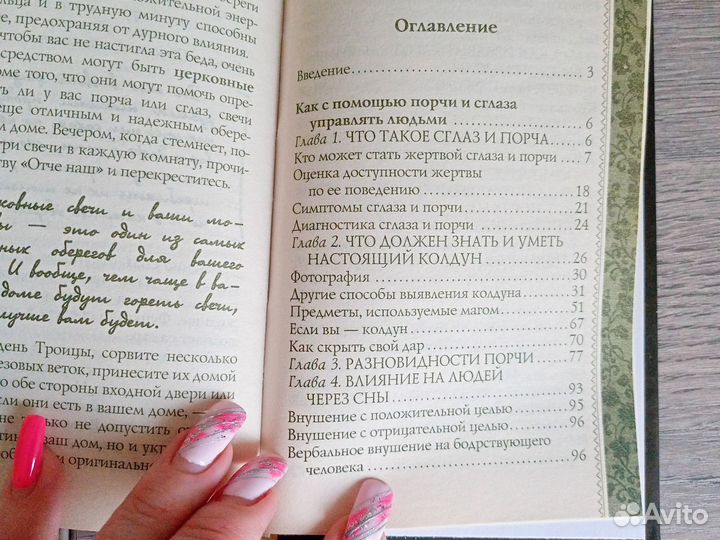 ереги
льца и в трудную минуту способны
ложительной энер-
ее, предохраняя от дурного влияния.
чтобы вас не настигла эта беда, очень
средством могут быть церковные
оме того, что они могут помочь опре-
ть ли у вас порча или сглаз, свечи
еще отличным и надежным обере-
м доме. Вечером, когда стемнеет, по-
три свечи в каждую комнату, прочи-
тву «Отче наш» и перекреститесь.
ковные свечи и ваши мо-
вы — это один из самых
ных оберегов для вашего
И вообще, чем чаще в ва-
доме будут гореть свечи,
лучше вам будет.
день Троицы, сорвите несколько
езовых веток, принесите их домой
о обе стороны входной двери или
сли они есть в вашем доме, —
не только не допустить
ваш дом, но и ук
оригинально
Оглавление
Введение 3
Как с помощью порчи и сглаза
управлять людьми 6
Глава 1. ЧТО ТАКОЕ СГЛАЗ И ПОРЧА 6
Кто может стать жертвой сглаза и порчи 7
Оценка доступности жертвы
по ее поведению 18
Симптомы сглаза и порчи 21
Диагностика сглаза и порчи 24
Глава 2. ЧТО ДОЛЖЕН ЗНАТЬ И УМЕТЬ
НАСТОЯЩИЙ КОЛДУН 26
Фотография 30
Другие способы выявления колдуна 31
Предметы, используемые магом 51
Если вы — колдун 67
Как скрыть свой дар 70
Глава 3. РАЗНОВИДНОСТИ ПОРЧИ 77
Глава 4. ВЛИЯНИЕ НА ЛЮДЕЙ
ЧЕРЕЗ СНЫ 93
Внушение с положительной целью 95
Внушение с отрицательной целью 96
Вербальное внушение на бодрствующего
человека 96
Avito